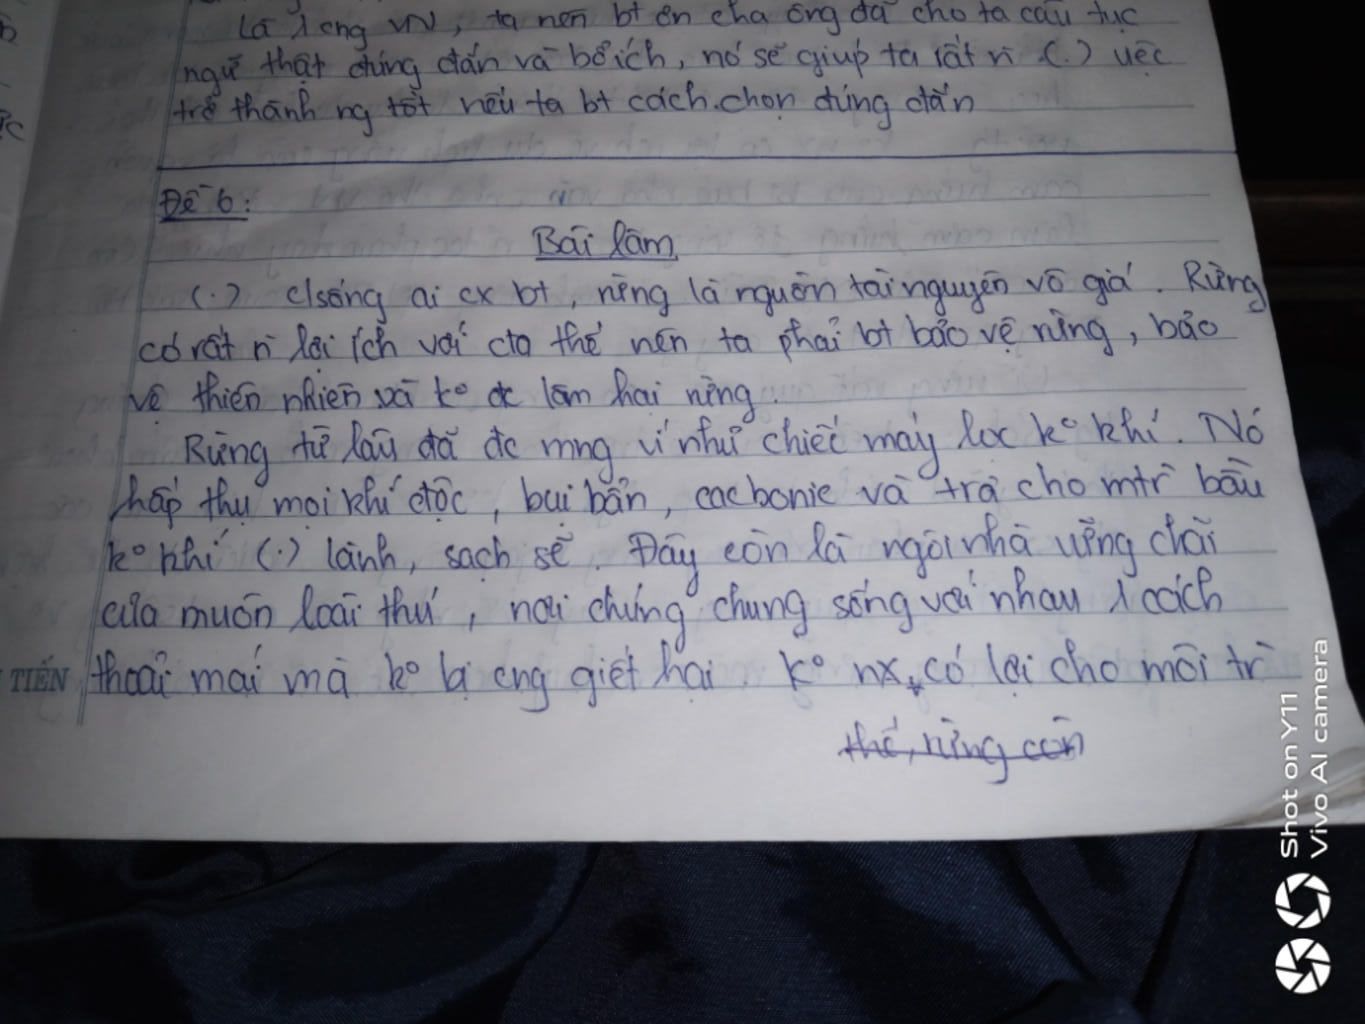 Là 1 cng VN, ta nên bt ơn cha ông đã cho ta câu tục
ngữ thật đúng đắn và bổ ích, nó sẽ giúp ta rất n` (.) việc
trở thành ng tốt nếu ta bt cách chọn đúng đắn
Đề 6:
Bài làm
(.) c/sống ai cx bt, rừng là nguồn tài nguyên vô giá. Rừng
có rất n` lợi ích với cta thế nên ta phải bt bảo vệ rừng, bảo
vệ thiên nhiên và k° đc làm hại rừng.
Rừng từ lâu đã đc mng ví như chiếc máy lọc k° khí. Nó
hấp thụ mọi khí độc, bụi bẩn, cacbonic và trả cho mtr` bầu
k° khí (.) lành, sạch sẽ. Đây còn là ngôi nhà vững chãi
của muôn loài thú, nơi chúng chung sống với nhau 1 cách
thoải mái mà k° bị cng giết hại. K° nx, có lợi cho môi tr`
TIẾN
thế, rừng còn
Shot on Y11
Vivo AI camera